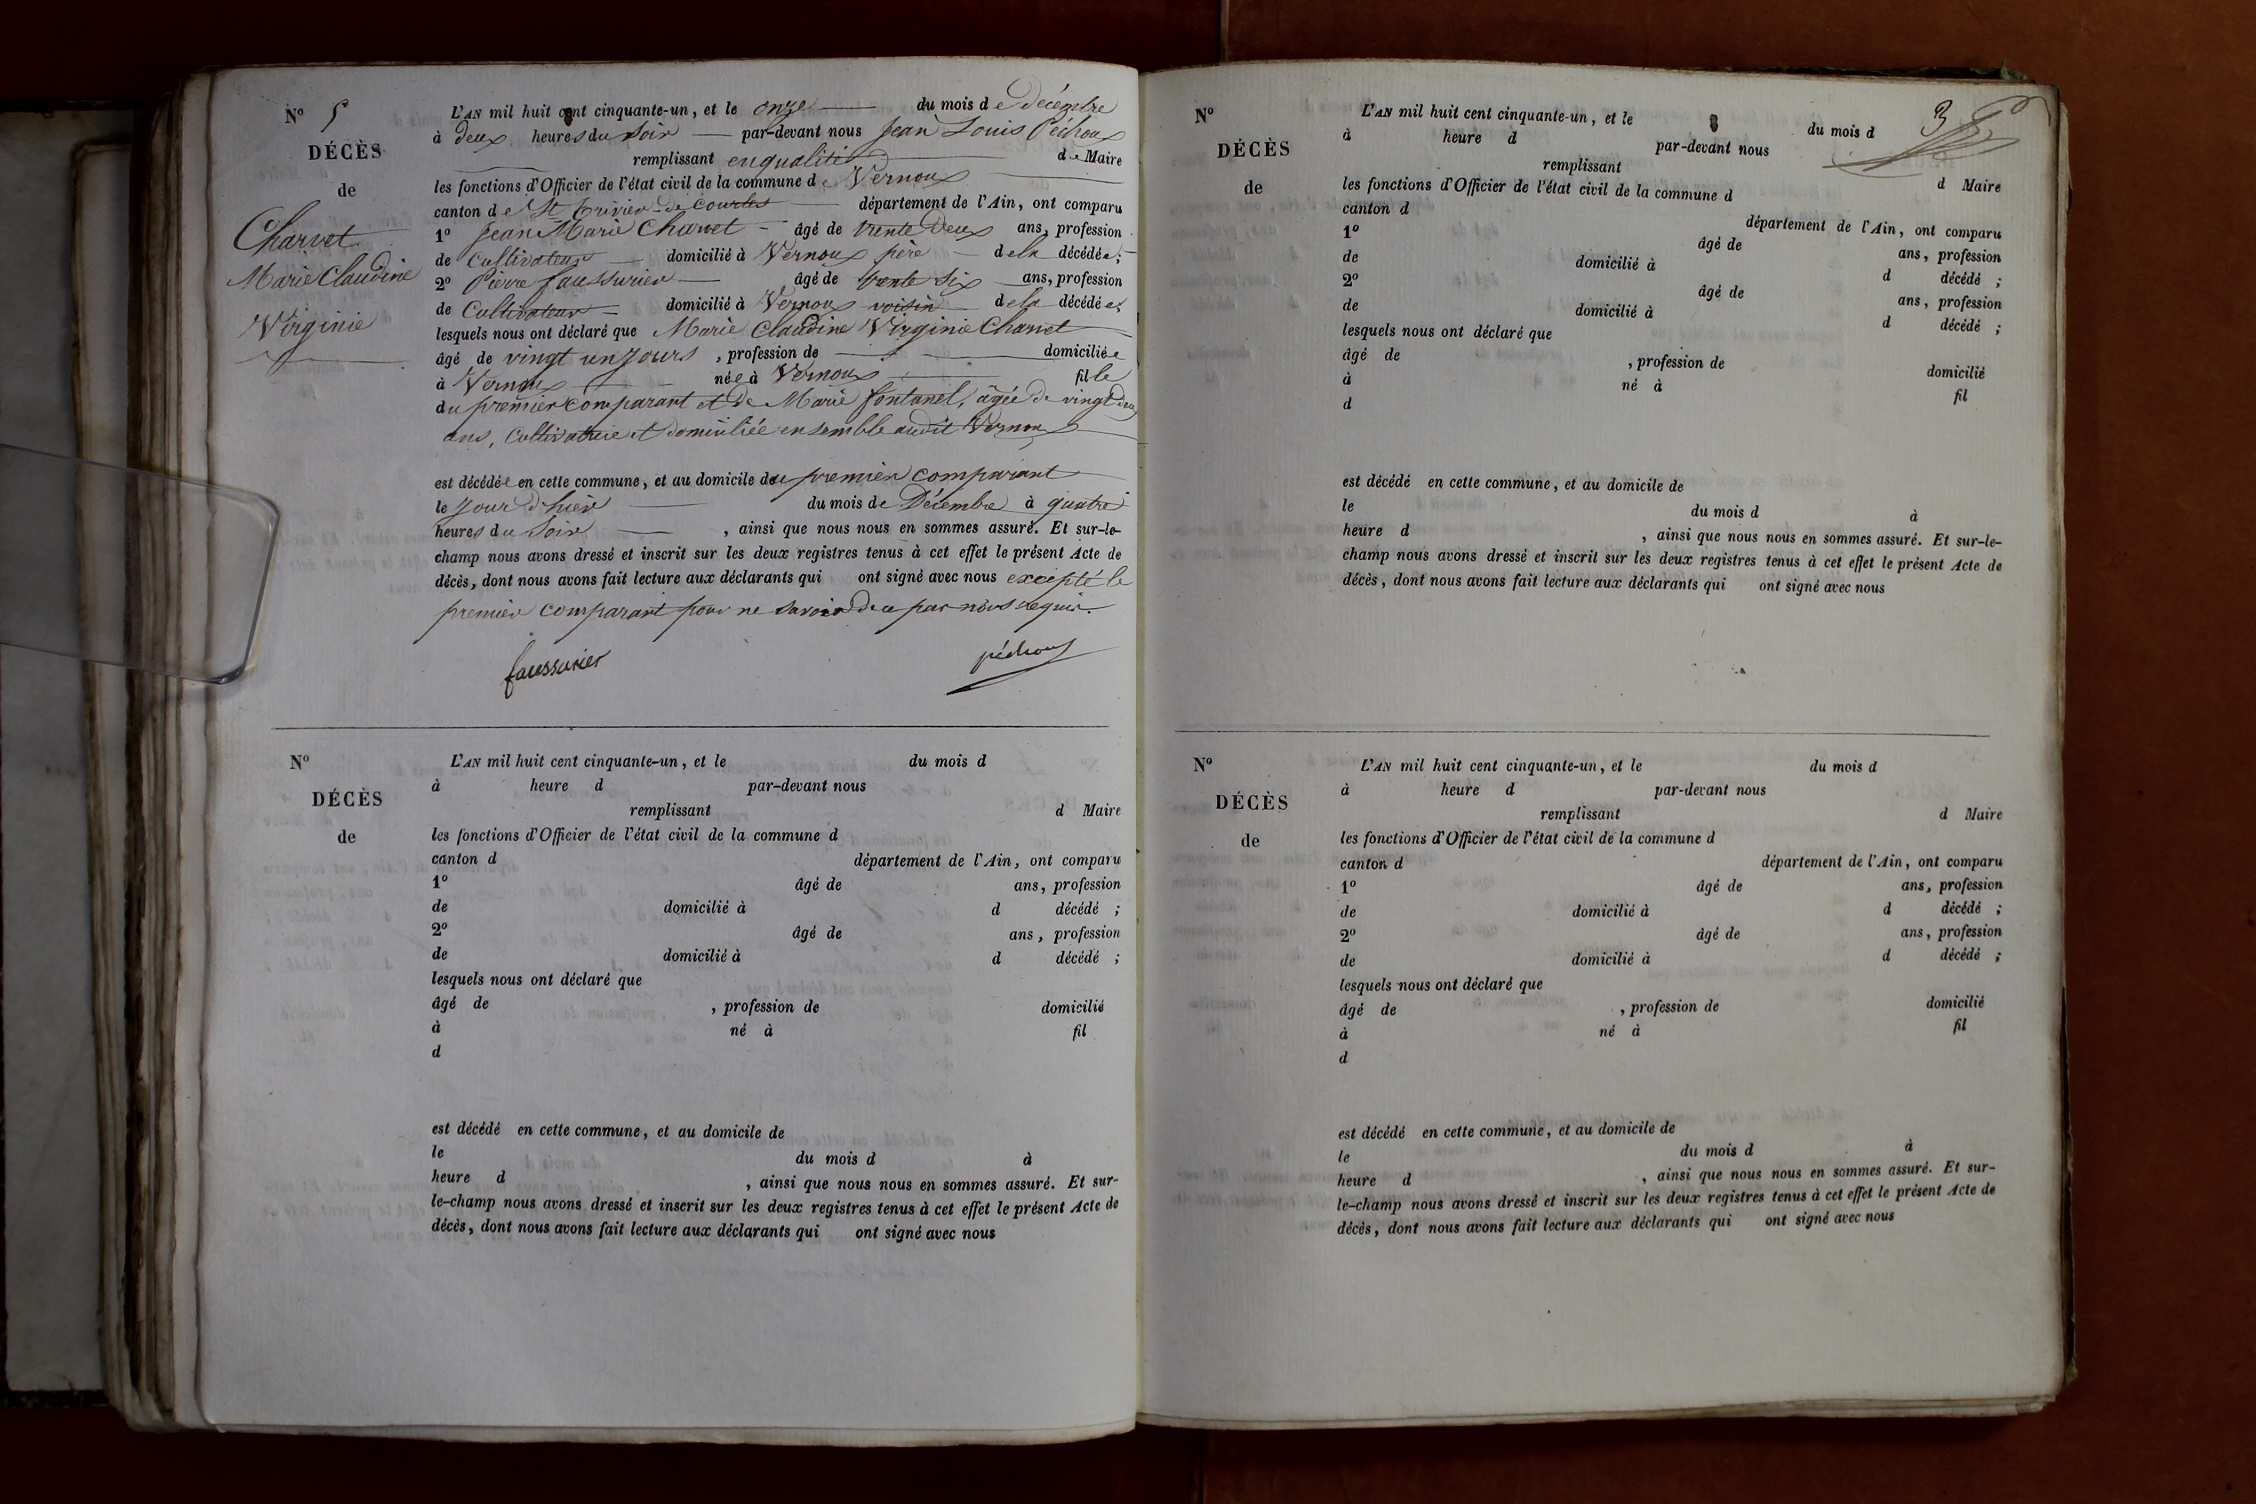 Nº 5
DÉCÈS
de
Charvet
Marie Claudine
Virginie
L'AN mil huit cent cinquante-un, et le onze du mois de Décembre
à deux heures du soir par-devant nous Jean Louis Pédroux
remplissant en qualité de Maire
les fonctions d'Officier de l'état civil de la commune de Vernoux
canton de St Trivier-de Courtes département de l'Ain, ont comparu
1º Jean Marie Charvet âgé de trente deux ans, profession
de Cultivateur domicilié à Vernoux père de la décédée;
2º Pierre faussurier âgé de trente six ans, profession
de Cultivateur domicilié à Vernoux voisin de la décédée;
lesquels nous ont déclaré que Marie Claudine Virginie Charvet
âgé de vingt un jours, profession de domiciliée
à Vernoux née à Vernoux fille
du premier comparant et de Marie fontanel, âgée de vingt deux
ans, cultivatrice et domiciliée ensemble audit Vernoux
est décédée en cette commune, et au domicile du premier comparant
le jour d'hier du mois de Décembre à quatre
heures du soir, ainsi que nous nous en sommes assuré. Et sur-le-
champ nous avons dressé et inscrit sur les deux registres tenus à cet effet le présent Acte de
décès, dont nous avons fait lecture aux déclarants qui ont signé avec nous excepté le
premier comparant pour ne savoir de ce par nous requis.
faussurier pédroux
Nº
DÉCÈS
de
L'AN mil huit cent cinquante-un, et le du mois d
à heure d par-devant nous
remplissant d Maire
les fonctions d'Officier de l'état civil de la commune d
canton d département de l'Ain, ont comparu
1º âgé de ans, profession
de domicilié à d décédé ;
2º âgé de ans, profession
de domicilié à d décédé ;
lesquels nous ont déclaré que
âgé de , profession de domicilié
à né à fil
d
est décédé en cette commune, et au domicile de
le du mois d à
heure d , ainsi que nous nous en sommes assuré. Et sur-
le-champ nous avons dressé et inscrit sur les deux registres tenus à cet effet le présent Acte de
décès, dont nous avons fait lecture aux déclarants qui ont signé avec nous
3
Nº
DÉCÈS
de
L'AN mil huit cent cinquante-un, et le du mois d
à heure d par-devant nous
remplissant d Maire
les fonctions d'Officier de l'état civil de la commune d
canton d département de l'Ain, ont comparu
1º âgé de ans, profession
de domicilié à d décédé ;
2º âgé de ans, profession
de domicilié à d décédé ;
lesquels nous ont déclaré que
âgé de , profession de domicilié
à né à fil
d
est décédé en cette commune, et au domicile de
le du mois d à
heure d , ainsi que nous nous en sommes assuré. Et sur-le-
champ nous avons dressé et inscrit sur les deux registres tenus à cet effet le présent Acte de
décès, dont nous avons fait lecture aux déclarants qui ont signé avec nous
Nº
DÉCÈS
de
L'AN mil huit cent cinquante-un, et le du mois d
à heure d par-devant nous
remplissant d Maire
les fonctions d'Officier de l'état civil de la commune d
canton d département de l'Ain, ont comparu
1º âgé de ans, profession
de domicilié à d décédé ;
2º âgé de ans, profession
de domicilié à d décédé ;
lesquels nous ont déclaré que
âgé de , profession de domicilié
à né à fil
d
est décédé en cette commune, et au domicile de
le du mois d à
heure d , ainsi que nous nous en sommes assuré. Et sur-
le-champ nous avons dressé et inscrit sur les deux registres tenus à cet effet le présent Acte de
décès, dont nous avons fait lecture aux déclarants qui ont signé avec nous